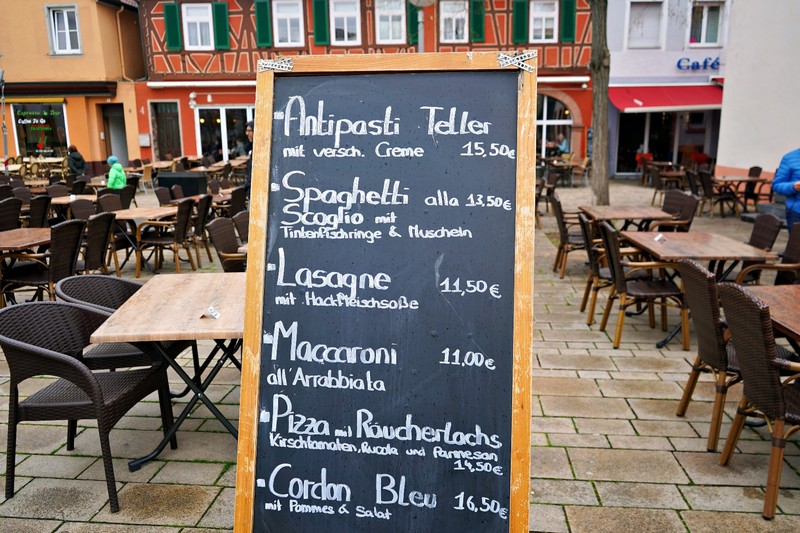 Espresso & Bar
Coffee To Go
Café
- Antipasti Teller
mit versch. Creme 15,50€
- Spaghetti alla 13,50€
Scoglio mit
Tintenfischringe & Muscheln
- Lasagne 11,50€
mit Hackfleischsoße
- Maccaroni 11,00€
all'Arrabbiata
- Pizza mit Räucherlachs
Kirschtomaten, Rucola und Parmesan
14,50€
- Cordon Bleu 16,50€
mit Pommes & Salat